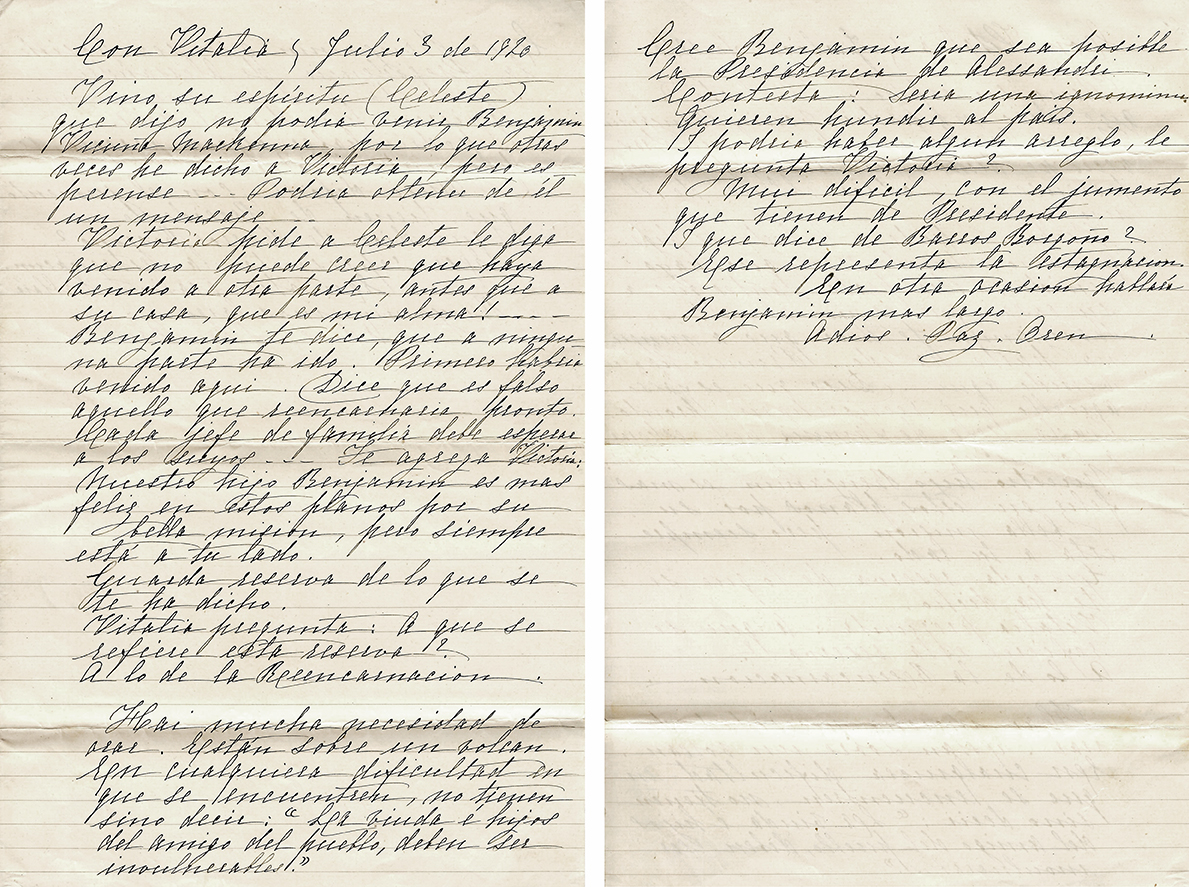 Con Vitalia y Julio 3 de 1920
Vino su espiritu (Celeste)
que dijo no podia venir Benjamin
Vicuna Mackenna, por lo que otras
veces he dicho a Victoria, pero es
perense --- Podria obtener de él
un mensaje ---
Victoria pide a Celeste le diga
que no puede creer que haya
venido a otra parte, antes que a
su casa, que es mi alma! ----
Benjamin te dice, que a ningu
na parte ha ido. Primero habria
venido aqui. Dice que es falso
aquello que reencarnaria pronto.
Cada jefe de familia debe esperar
a los suyos -- Te agrega Victoria:
Nuestro hijo Benjamin es mas
feliz en estos planos por su
bella mision, pero siempre
está a tu lado.
Guarda reserva de lo que se
te ha dicho.
Vitalia pregunta: A que se
refiere esta reserva?
A lo de la Reencarnacion.
Hai mucha necesidad de
orar. Están sobre un volcan.
En cualquiera dificultad en
que se encuentren, no tienen
sino decir: "La viuda e hijos
del amigo del pueblo, deben ser
invulnerables."
Cree Benjamin que sea posible
la Presidencia de Alessandri.
Contesta: Seria una ignominia.
Quieren hundir al país.
I podria haber algun arreglo, le
pregunta Victoria?
Mui dificil, con el jumento
que tienen de Presidente.
I que dice de Barros Borgoño?
Ese representa la estagnacion.
En otra ocasion hablará
Benjamin mas largo.
Adios. Paz. Oren.